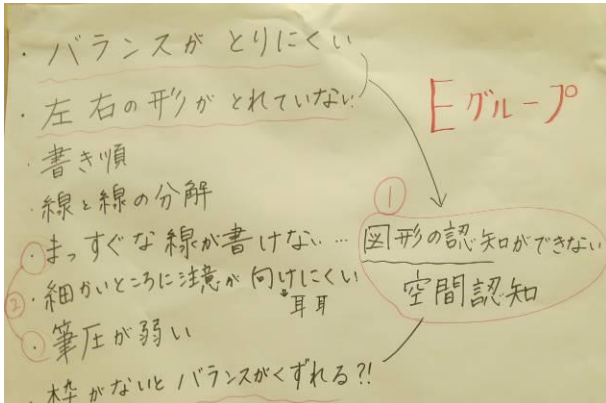 ・バランスが とりにくい
・左右の形が とれていない
Eグループ
・書き順
・線と線の分解
・まっすぐな線が書けない…
①
図形の認知ができない
空間認知
②
・細かいところに注意が向けにくい
*耳耳
・筆圧が弱い
・枠がないとバランスがくずれる?!